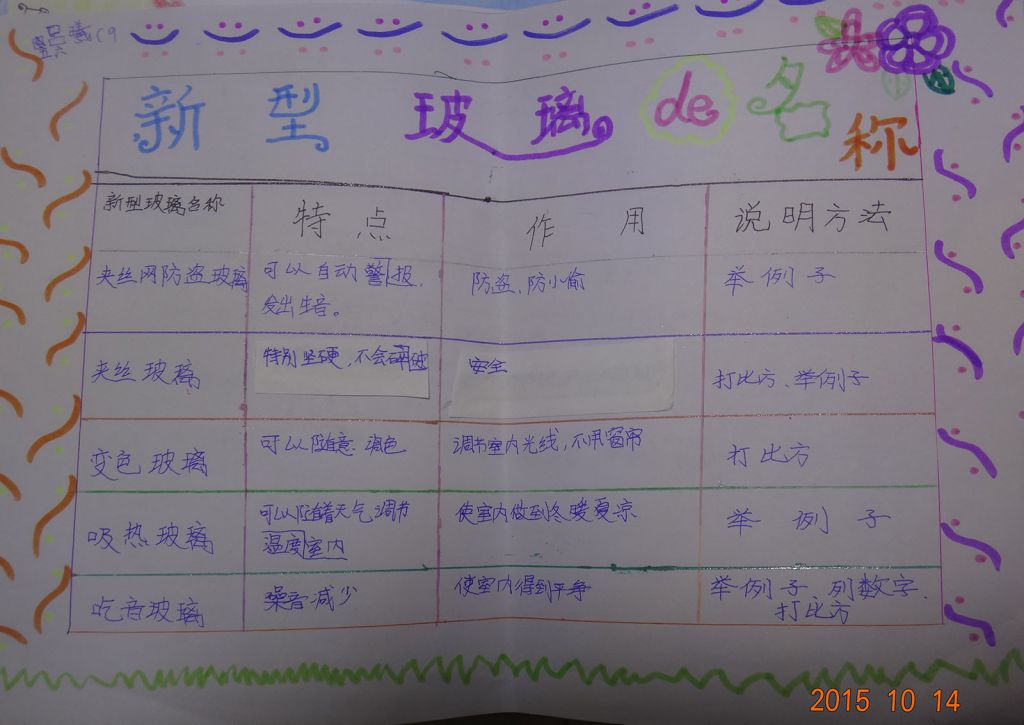 新型玻璃de名称
新型玻璃名称 特点 作用 说明方法
夹丝网防盗玻璃 可以自动警报、 防盗、防小偷 举例子
发出生音。
夹丝玻璃 特别坚硬,不会破 安全 打比方、举例子
变色玻璃 可以随意 色 调节室内光线,不用窗帘 打比方
吸热玻璃 可以随着天气调节 使室内做到冬暖夏凉 举例子
温度室内
吃音玻璃 噪音减少 使室内得到平 举例子、列数字、
打比方
2015 10 14